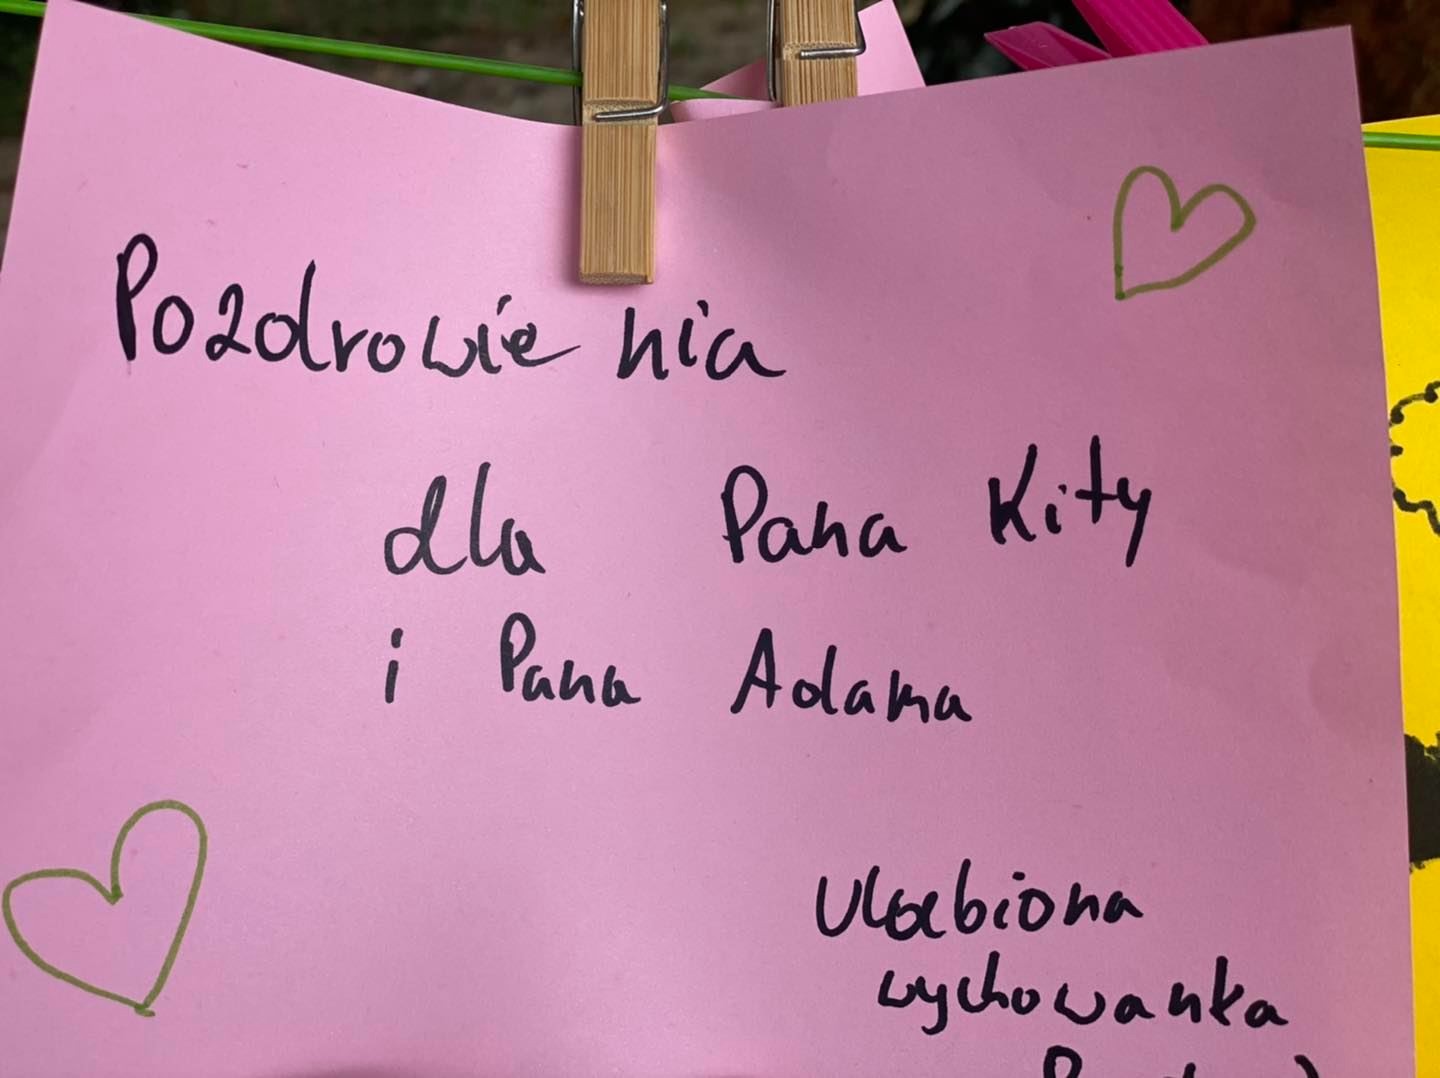 Pozdrowienia
dla Pana Kity
i Pana Adama
Ulubiona
wychowanka